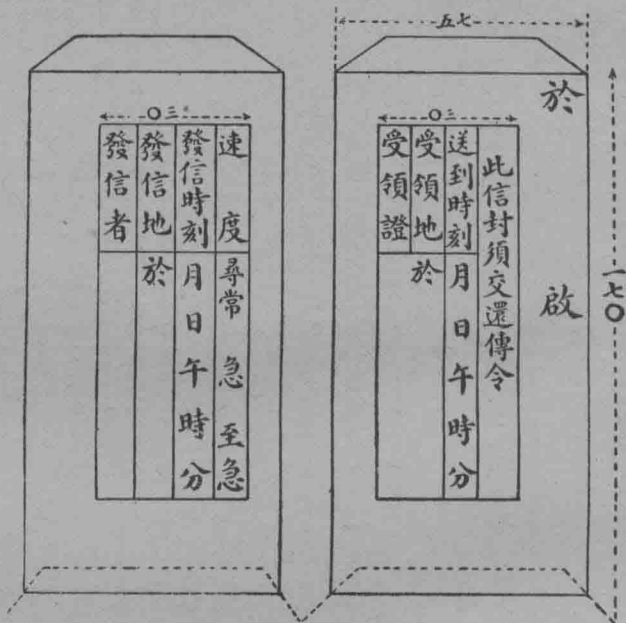 五七
一七〇
於
啟
三〇
此信封須交還傳令
送到時刻 月日午時分
受領地 於
受領證
三〇
速度 尋常 急 至急
發信時刻 月日午時分
發信地 於
發信者